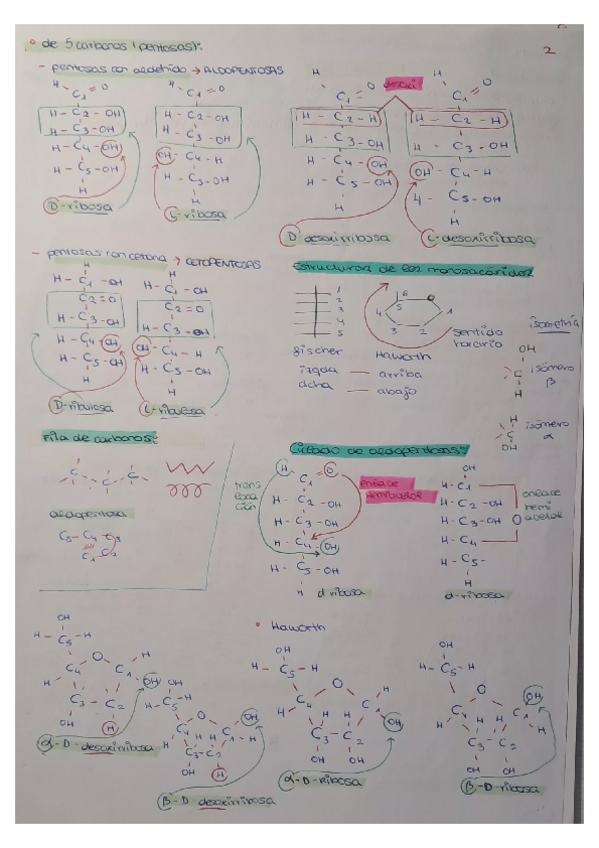 2
de 5 carbonos (pentosas):
- pentosas con aldehido → ALDOPENTOSAS
desoxi
H C1 O
H - C2 - OH
H - C3 - OH
H - C4 - OH
H - C5 - OH
H
D-ribosa
H C1 O
H - C2 - OH
H - C3 - OH
OH - C4 - H
H - C5 - OH
H
L-ribosa
H C1 O
H - C2 - H
H - C3 - OH
H - C4 - OH
H - C5 - OH
H
D-desoxirribosa
H C1 O
H - C2 - H
H - C3 - OH
OH - C4 - H
H - C5 - OH
H
L-desoxirribosa
- pentosas con cetona → CETOPENTOSAS
H
H - C1 - OH
C2 = O
H - C3 - OH
H - C4 - OH
H - C5 - OH
H
D-ribulosa
H
H - C1 - OH
C2 = O
H - C3 - OH
OH - C4 - H
H - C5 - OH
H
L-ribulosa
Estructuras de los monosacáridos
1
2
3
4
5
6
5
4
3 2
1
sentido
horario
fischer Haworth
izqda — arriba
dcha — abajo
isometría
OH
C
H
isómero
β
H
C
OH
isómero
α
Fila de carbonos:
C C C C
aldopentosa
C5 - C4 C3
C1 C2
Ciclado de aldopentosas:
trans
locación
H O
C1
H - C2 - OH
H - C3 - OH
H - C4 - OH
H - C5 - OH
H
d ribosa
enlace
OH
H - C1
H - C2 - OH
H - C3 - OH O
H - C4
H - C5 -
H
d-ribosa
enlace
hemi
acetal
• Haworth
OH
C5 - H
H O H
C4 C1
C3 C2 OH
OH H
α-D-desoxirribosa
OH
H - C5 - H
O OH
C4 H H C1 H
C3 - C2
OH H
β-D desoxirribosa
OH
C5 - H
H O H
C4 H H C1
C3 - C2 OH
OH OH
α-D-Ribosa
OH
C5 - H
H O OH
C4 H H C1 H
C3 - C2
OH OH
β-D-ribosa